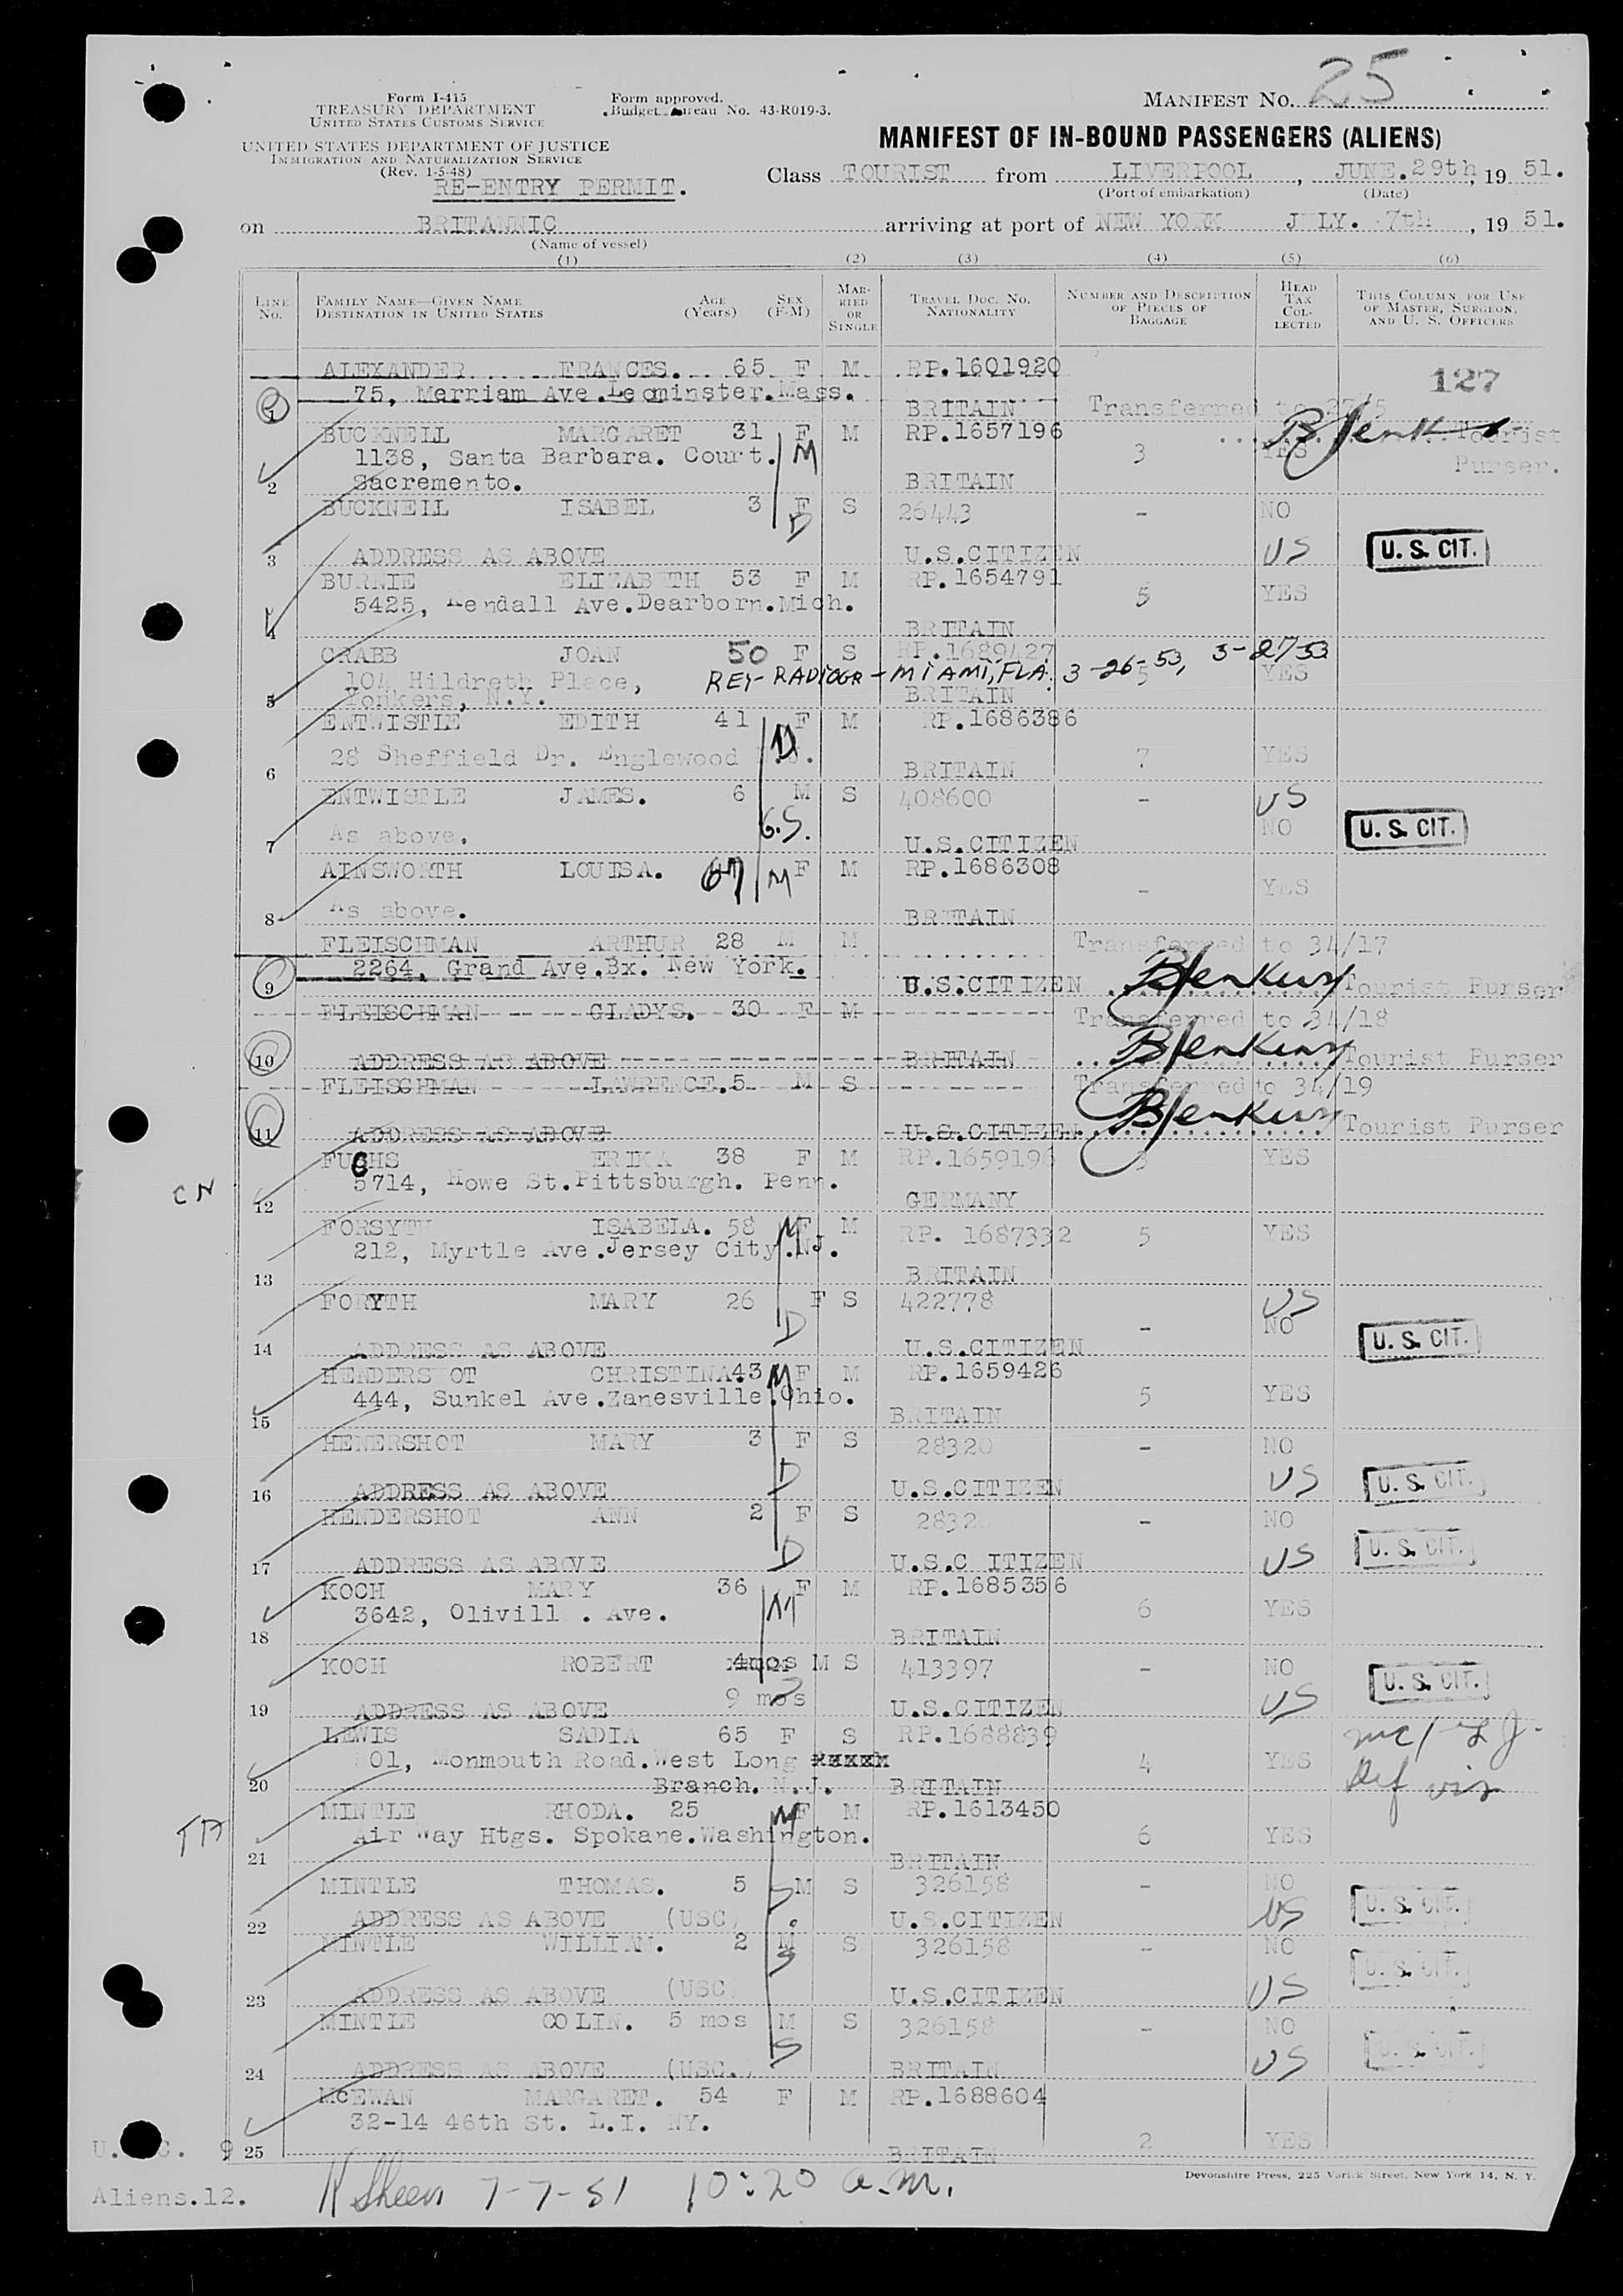 Form I-415
TREASURY DEPARTMENT
UNITED STATES CUSTOMS SERVICE
UNITED STATES DEPARTMENT OF JUSTICE
IMMIGRATION AND NATURALIZATION SERVICE
(Rev. 1-5-48)
RE-ENTRY PERMIT.
Form approved.
Budget Bureau No. 43-R019-3.
MANIFEST NO. 25
MANIFEST OF IN-BOUND PASSENGERS (ALIENS)
Class TOURIST from LIVERPOOL, JUNE.29th, 19 51.
(Port of embarkation) (Date)
on BRITANNIC arriving at port of NEW YORK JULY. 7th, 19 51.
(Name of vessel)
(1) (2) (3) (4) (5) (6)
LINE No. FAMILY NAME—GIVEN NAME DESTINATION IN UNITED STATES AGE (Years) SEX (F-M) MARRIED OR SINGLE TRAVEL DOC. NO. NATIONALITY NUMBER AND DESCRIPTION OF PIECES OF BAGGAGE HEAD TAX COLLECTED THIS COLUMN FOR USE OF MASTER, SURGEON, AND U. S. OFFICERS
ALEXANDER FRANCES. 65 F M RP.1601920 127
1 75, Merriam Ave.Leominster.Mass. BRITAIN Transferred to
BUCKNELL MARGARET 31 F M RP.1657196 Tourist
1138, Santa Barbara. Court. M 3 YES Purser.
2 Sacremento. BRITAIN
BUCKNELL ISABEL 3 F S 26443 - NO
D
3 ADDRESS AS ABOVE U.S.CITIZEN US U. S. CIT.
BURNIE ELIZABETH 53 F M RP.1654791
5425, Kendall Ave.Dearborn.Mich. 5 YES
4 BRITAIN
CRABB JOAN 50 F S RP.1689427
104 Hildreth Place, REY-RADIOGR-MIAMI, FLA. 3-26-53, 3-27-53 5 YES
5 Yonkers, N.Y. BRITAIN
ENTWISTLE EDITH 41 F M RP.1686386
D
6 28 Sheffield Dr. Englewood BRITAIN 7 YES
ENTWISTLE JAMES. 6 M S 408600 - US
G.S.
7 As above. U.S.CITIZEN NO U. S. CIT.
AINSWORTH LOUISA. 67 M F M RP.1686308 - YES
8 As above. BRITAIN
FLEISCHMAN ARTHUR 28 M M Transferred to 34/17
9 2264, Grand Ave.Bx. New York. U.S.CITIZEN BJenkins Tourist Purser
FLEISCHMAN GLADYS. 30 F M Transferred to 34/18
10 ADDRESS AS ABOVE BRITAIN BJenkins Tourist Purser
FLEISCHMAN LAWRENCE.5 M S Transferred to 34/19
11 ADDRESS AS ABOVE U.S.CITIZEN BJenkins Tourist Purser
FUCHS ERIKA 38 F M RP.1659196 3 YES
CN 5714, Howe St.Pittsburgh. Penn.
12 GERMANY
FORSYTH ISABELA. 58 M F M RP. 1687332 5 YES
212, Myrtle Ave.Jersey City.NJ.
13 BRITAIN
FORYTH MARY 26 F S 422778 US
D - NO
14 ADDRESS AS ABOVE U.S.CITIZEN U. S. CIT.
HENDERSHOT CHRISTINA.43 M F M RP.1659426
444, Sunkel Ave.Zanesville.Ohio. 5 YES
15 BRITAIN
HENERSHOT MARY 3 F S 28320 - NO
D
16 ADDRESS AS ABOVE U.S.CITIZEN US U. S. CIT.
HENDERSHOT ANN 2 F S 2832 - NO
D
17 ADDRESS AS ABOVE U.S.C ITIZEN US U. S. CIT.
KOCH MARY 36 F M RP.1685356
3642, Olivill . Ave. M 6 YES
18 BRITAIN
KOCH ROBERT 4mos M S 413397 - NO
9 mos S U. S. CIT.
19 ADDRESS AS ABOVE U.S.CITIZEN US
LEWIS SADIA 65 F S RP.1688839
01, Monmouth Road.West Long 4 YES
20 Branch. N.J. BRITAIN
MINTLE RHODA. 25 M F M RP.1613450
TA Air Way Htgs. Spokane.Washington. 6 YES
21 BRITAIN
MINTLE THOMAS. 5 S M S 326158 - NO
22 ADDRESS AS ABOVE (USC) U.S.CITIZEN US U. S. CIT.
MINTLE WILLIAM. 2 M S 326158 - NO
S U. S. CIT.
23 ADDRESS AS ABOVE (USC) U.S.CITIZEN US
MINTLE COLIN. 5 mos M S 326158 - NO
S U. S. CIT.
24 ADDRESS AS ABOVE (USC.) BRITAIN US
McEWAN MARGARET. 54 F M RP.1688604
32-14 46th St. L.I. NY.
25 BRITAIN 2 YES
U. C. 9
Aliens.12.
7-7-51 10:20 a.m.
Devonshire Press, 225 Varick Street, New York 14, N. Y.